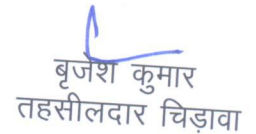 बृजेश कुमार
तहसीलदार चिड़ावा